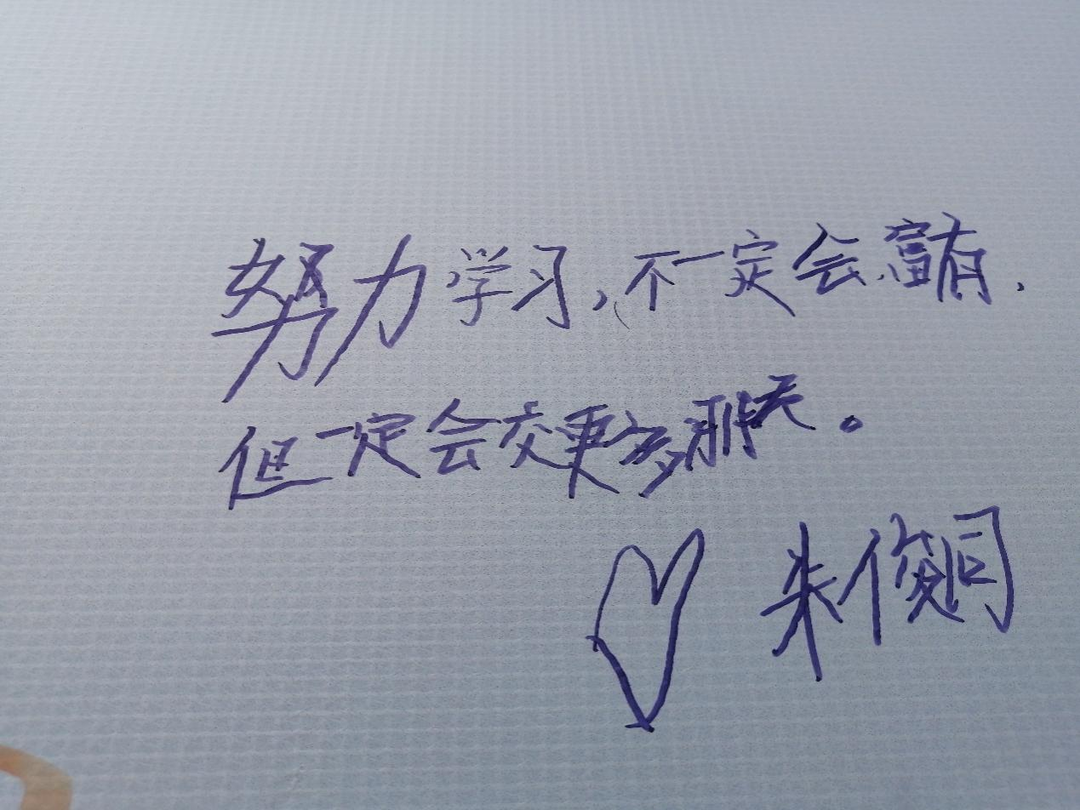 努力学习,不一定会富有,
但一定会交更多朋友。
朱俊同